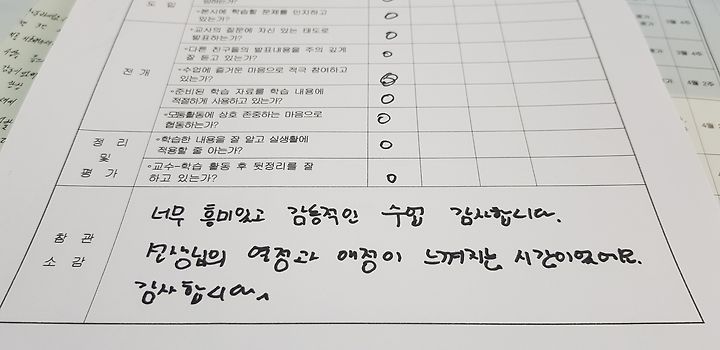 도 입
◦본시에 학습할 문제를 인지하고
있는가?
◦교사의 질문에 자신 있는 태도로
발표하는가?
◦다른 친구들의 발표내용을 주의 깊게
잘 듣고 있는가?
전 개
◦수업에 즐거운 마음으로 적극 참여하고
있는가?
◦준비된 학습 자료를 학습 내용에
적절하게 사용하고 있는가?
◦모둠활동에 상호 존중하는 마음으로
협동하는가?
정 리
및
평 가
◦학습한 내용을 잘 알고 실생활에
적용할 줄 아는가?
◦교수-학습 활동 후 뒷정리를 잘
하고 있는가?
참 관
소 감
너무 흥미있고 감동적인 수업 감사합니다.
선생님의 열정과 애정이 느껴지는 시간이었어요.
감사합니다.
3월 4주
4월 2주